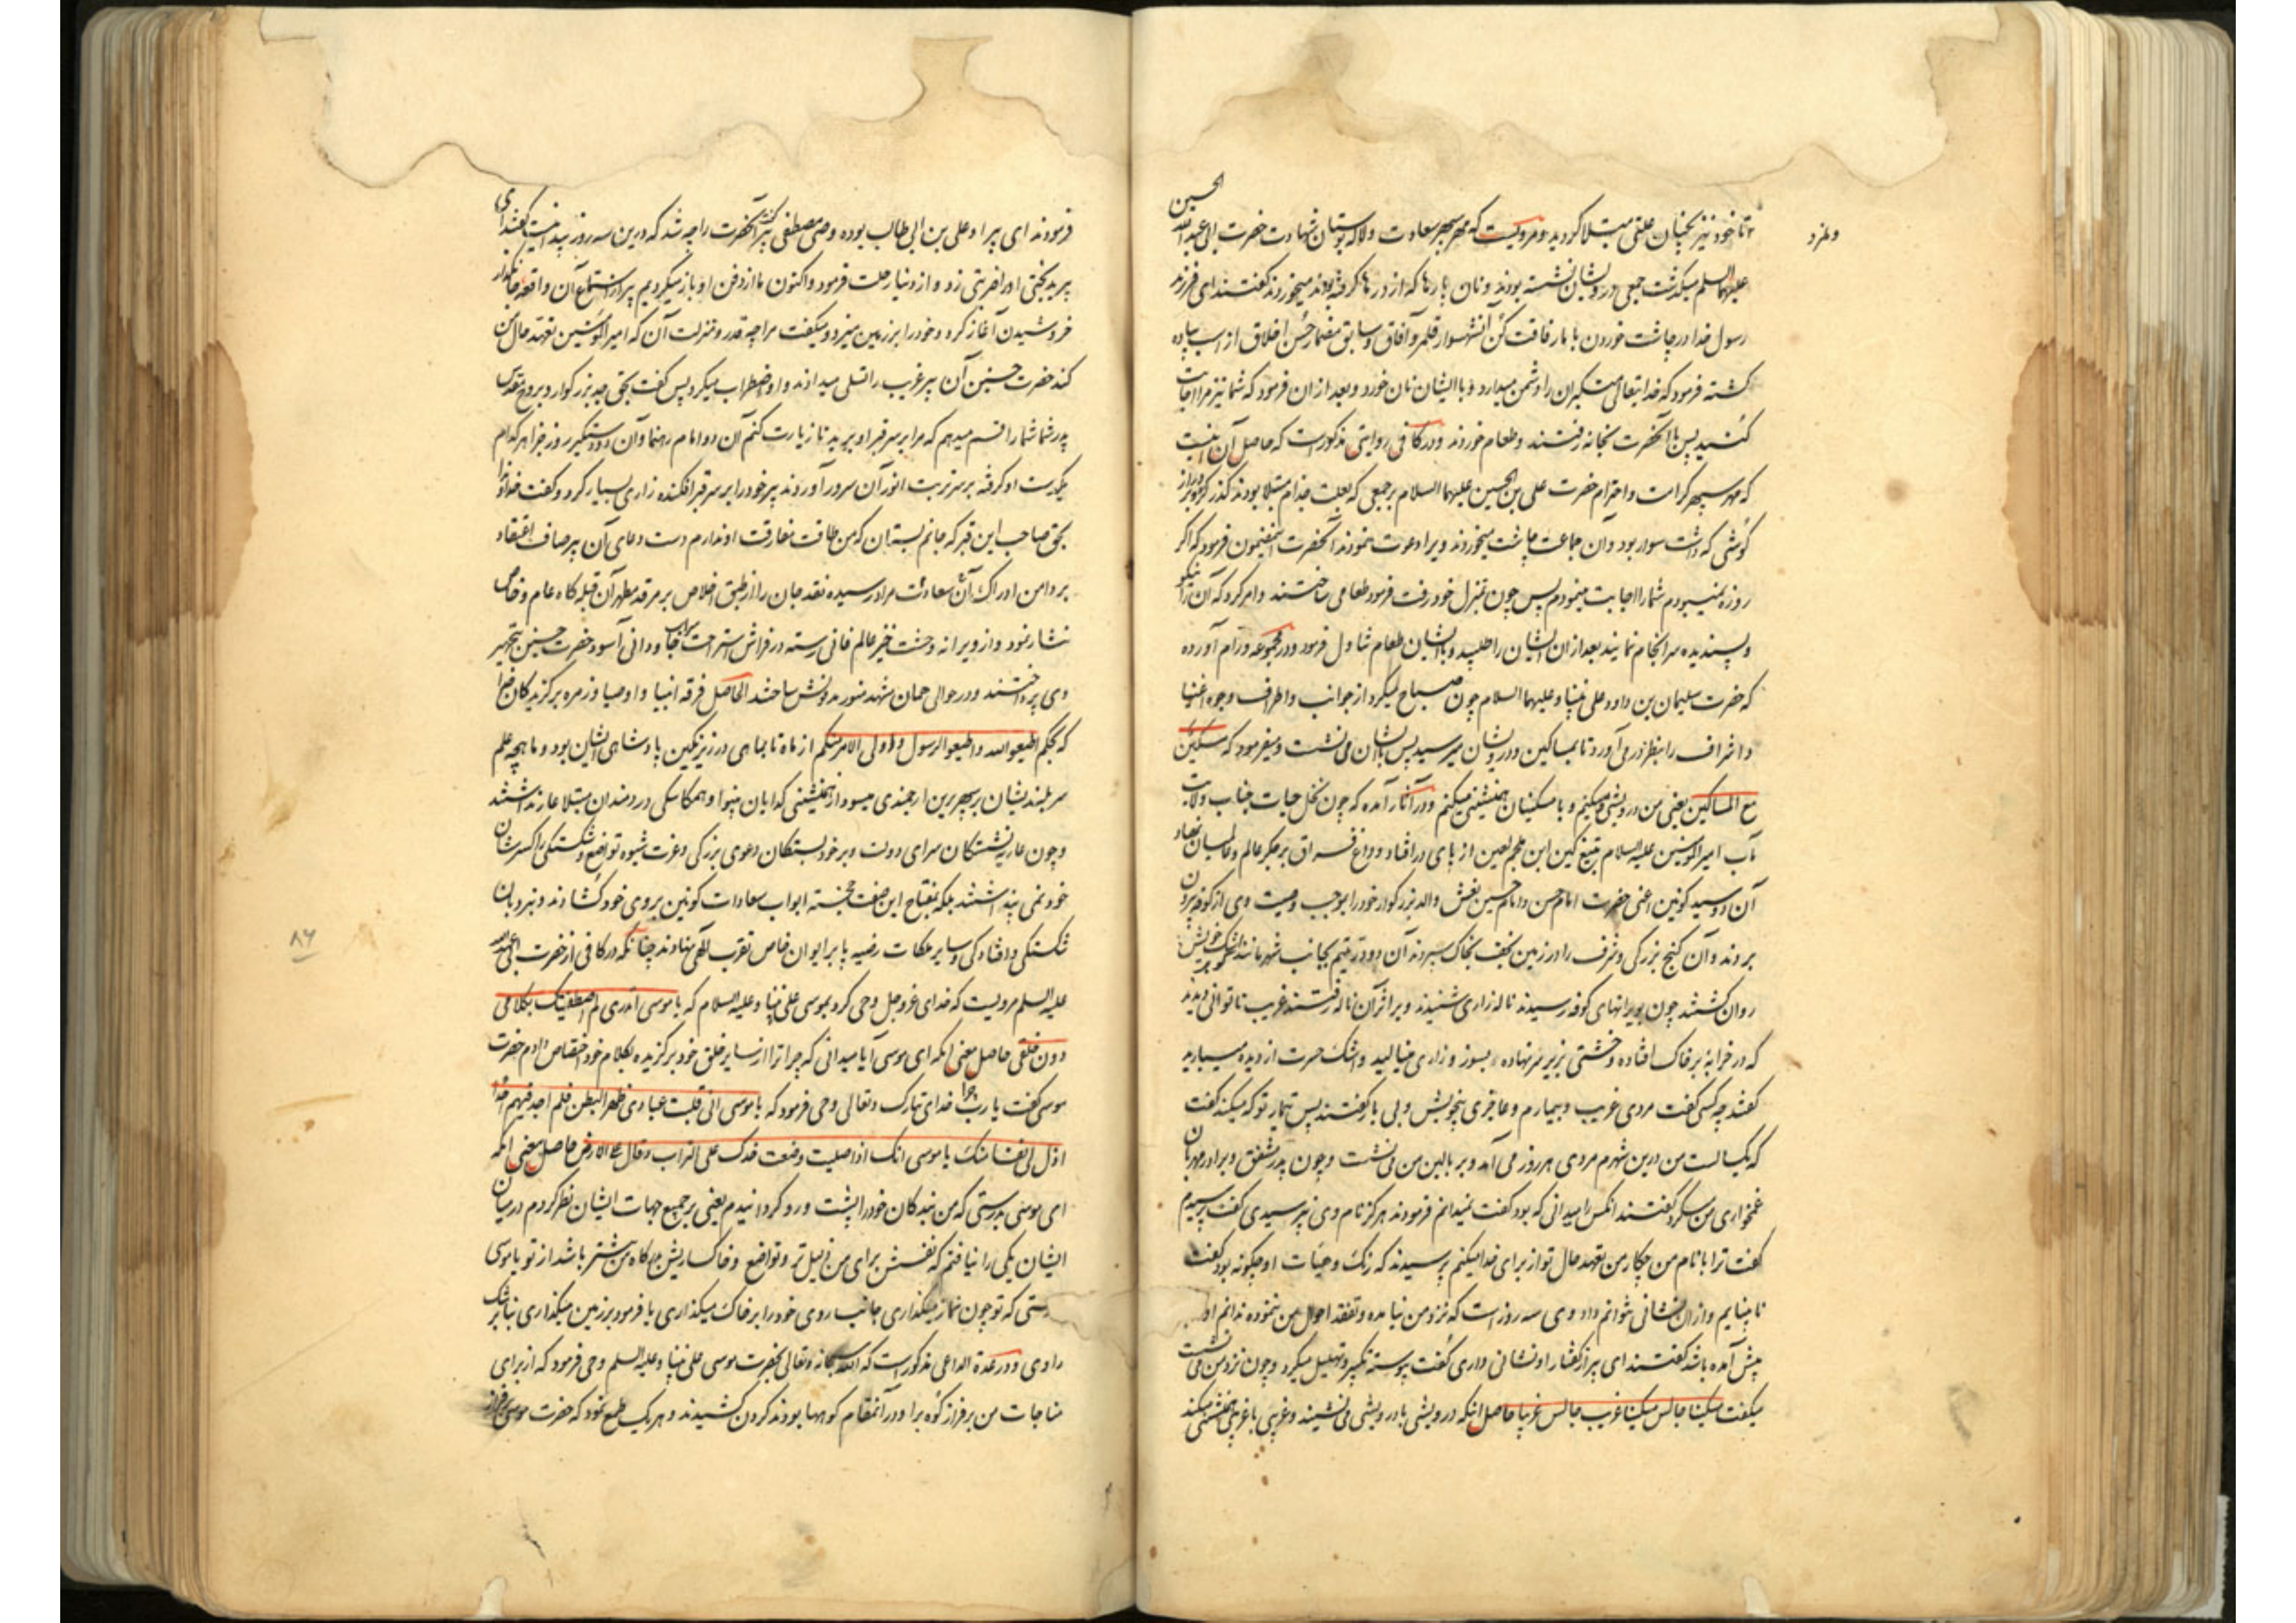 تا خود نیز بچنان علتی مبتلا کردید و مرویست که مهر سپهر سعادت و لاله بوستان شهادت حضرت ابی عبدالله الحسین
علیهما السلم میکذشت جمعی درویشان نشسته بودند و نان پارها که از درها کرفته بودند میخوردند کفتند ای فرزند
رسول خدا در چاشت خوردن با ما رفاقت کن آن شهسوار قلمرو آفاق و سابق مضمار حسن اخلاق از اسب پیاده
کشته فرمود که خدایتعالی متکبران را دشمن میدارد و با ایشان نان خورد و بعد از ان فرمود که شما نیز مرا اجابت
کنید پس با آنحضرت بخانه رفتند و طعام خوردند و در کافی روایتی مذکورست که حاصل آن اینست
که مهر سپهر کرامت و احترام حضرت علی بن الحسین علیهما السلام بر جمعی که بعلت جذام مبتلا بودند کذر کرد و بر دراز
کوشی که داشت سوار بود و آن جماعت چاشت میخوردند ویرا دعوت نمودند آنحضرت باین مضمون فرمود که اکر
روزه نمیبودم شما را اجابت مینمودم پس چون بمنزل خود رفت فرمود طعامی ساختند و امر کرد که آن را نیکو
و پسندیده سرانجام نمایند بعد از ان ایشان را طلبید و با ایشان طعام تناول فرمود و در مجموعه ورام آورده
که حضرت سلیمان بن داود علی نبینا و علیهما السلام چون صباح میکرد از جوانب و اطراف وجوه اغنیا
و اشراف را بنظر در می آورد تا بمساکین و درویشان میرسید پس با ایشان می نشست و میفرمود که مسکین
مع المساکین یعنی من درویشی و مسکینم و با مسکینان همنشینی میکنم و در آثار آمده که چون نخل حیات جناب ولایت
مآب امیر المؤمنین علیه السلام بتیغ کین ابن ملجم لعین از پای در افتاد و داغ فراق بر جکر عالم و عالمیان نهاد
آن دو سید کونین اعنی حضرت امام حسن و امام حسین نعش والد بزرکوار خود را بموجب وصیت وی از کوفه بیرون
بردند و آن کنج بزرکی و شرف را در زمین نجف بخاک سپردند آن دو در یتیم بجانب شهر مانند اشک خویش
روان کشتند چون بویرانهای کوفه رسیدند ناله زاری شنیدند و بر اثر آن ناله رفتند غریب ناتوانی دیدند
که در خرابه بر خاک افتاده و خشتی بزیر سر نهاده بسوز و زاری مینالید و اشک حسرت از دیده میبارید
کفتند چه کسی کفت مردی غریب و بیمارم و عاجزی بیخویش و بی یار کفتند پس تیمار تو که میکند کفت
که یکسالست من درین شهرم مردی هر روز می آمد و بر بالین من می نشست و چون پدر مشفق و برادر مهربان
غمخواری من میکرد کفتند آنکس را میدانی که بود کفت نمیدانم فرمودند هرکز نام وی نپرسیدی کفت پرسیدم
کفت ترا با نام من چکار من تعهد حال تو از برای خدا میکنم پرسیدند که رنک و هیات او چکونه بود کفت
نابینایم و از ان نشانی نتوانم داد وی سه روز است که نزد من نیامده و تفقد احوال من ننموده ندانم او را
پیش آمده باشد کفتند ای پیر از کفتار او نشانی داری کفت پیوسته تکبیر و تهلیل میکرد و چون نزد من می نشست
میکفت مسکینا جالس مسکینا غریب جالس غریبا حاصل آنکه درویشی با درویشی می نشیند و غریبی با غریبی همنشینی میکند
فرمودند ای پیر او علی بن ابی طالب بوده وصی مصطفی پیر کفت آنحضرت را چه شد که درین سه روز پیدا نیست کفتند ای
پیر بدبختی او را ضربتی زد و از دنیا رحلت فرمود و اکنون ما از دفن او باز میکردیم پیر از استماع آن واقعه جانکداز
خروشیدن آغاز کرد و خود را بر زمین میزد و میکفت مرا چه قدر و منزلت آن که امیر المؤمنین تعهد حال من
کند حضرت حسنین آن پیر غریب را تسلی میدادند و او اضطراب میکرد پس کفت بحق جد بزرکوار و بروح مقدس
پدر شما شما را قسم میدهم که مرا بر سر قبر او برید تا زیارت کنم آن دو امام رهنما و آن دو دستکیر روز جزا هر کدام
یکدست او کرفته بر سر تربت انور آن سرور آوردند پیر خود را بر سر قبر افکنده زاری بسیار کرد و کفت خداوندا
بحق صاحب این قبر که جانم بستان که من طاقت مفارقت او ندارم دست دعای آن پیر صاف اعتقاد
بر دامن ادراک آن سعادت مراد رسیده نقد جان را از طبق اخلاص بر مرقد مطهر آن قبله کاه عام و خاص
نثار نمود و از ویرانه وحشت خیز عالم فانی رسته در فراش استراحت سرای جاودانی آسود حضرت حسنین بتجهیز
وی پرداختند و در حوالی همان مشهد منور مدفونش ساختند الحاصل فرقه انبیا و اوصیا و زمره برکزیدکان خدا
که بحکم اطیعوا الله و اطیعوا الرسول و اولی الامر منکم از ماه تا بماهی در زیر نکین پادشاهی ایشان بود و ماهچه علم
سربلندیشان بر سپهر برین ارجمندی میسود از همنشینی کدایان بینوا و همکاسکی دردمندان مبتلا عار نداشتند
و چون عاریت نشستکان سرای دولت و بر خود بستکان دعوی بزرکی و عزت شیوه تواضع و شکستکی را کسر شان
خود نمی پنداشتند بلکه بمفتاح این صفت خجسته ابواب سعادات کونین بروی خود کشادند و بنردبان
شکستکی و افتادکی و سایر ملکات رضیه پا بر ایوان خاص تقرب الهی نهادند چنانکه در کافی از حضرت ابی عبدالله
علیه السلم مرویست که خدای عز و جل وحی کرد بموسی علی نبینا و علیه السلام که یا موسی اتدری لم اصطفیتک بکلامی
دون خلقی حاصل معنی آنکه ای موسی آیا میدانی که چرا ترا از سایر خلق خود برکزیده بکلام خود اختصاص دادم حضرت
موسی کفت یا رب چرا خدای تبارک و تعالی وحی فرمود که یا موسی انی قلبت عبادی ظهر البطن فلم اجد فیهم احدا
اذل لی نفسا منک یا موسی انک اذا صلیت وضعت خدک علی التراب و قال علی الارض حاصل معنی آنکه
ای موسی بدرستی که من بندکان خود را پشت و رو کردانیدم یعنی بر جمیع جهات ایشان نظر کردم در میان
ایشان یکی را نیافتم که نفسش برای من ذلیل تر و تواضع و خاکساریش بدرکاه من بیشتر باشد از تو یا موسی
بدرستی که تو چون نماز میکذاری جانب روی خود را بر خاک میکذاری یا فرمود بر زمین میکذاری بنا بر شک
راوی و در عدة الداعی مذکور است که الله سبحانه و تعالی بحضرت موسی علی نبینا و علیه السلم وحی فرمود که از برای
مناجات من بر فراز کوه برا و در آنمقام کوهها بودند کردن کشیدند و هر یک طمع نمود که حضرت موسی بر فراز
۸۶